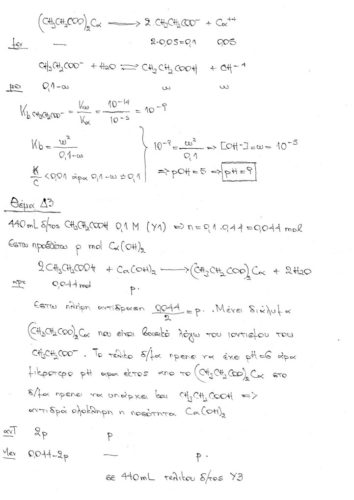 (CH₃CH₂COO)₂Ca ⟶ 2 CH₃CH₂COO⁻ + Ca⁺⁺
— 2·0,05=0,1 0,05
CH₃CH₂COO⁻ + H₂O ⇌ CH₃CH₂COOH + OH⁻
0,1-ω ω ω
Kb CH₃CH₂COO⁻ = Kω/Ka = 10⁻¹⁴/10⁻⁵ = 10⁻⁹
Kb = ω²/0,1-ω } 10⁻⁹ = ω²/0,1 ⇒ [OH⁻]=ω= 10⁻⁵
K/C < 0,01 άρα 0,1-ω ≅ 0,1 ⇒ pOH = 5 ⇒ pH = 9
Θέμα Δ3
440mL δ/τος CH₃CH₂COOH 0,1 M (Y1) ⇒ n = 0,1 . 0,44 = 0,044 mol
Έστω προσθέτω ρ mol Ca(OH)₂
2CH₃CH₂COOH + Ca(OH)₂ ⟶ (CH₃CH₂COO)₂Ca + 2H₂O
αρχ 0,044 mol ρ.
Έστω πλήρη αντίδραση 0,044/2 = ρ. Μένει διάλυμα
(CH₃CH₂COO)₂Ca που είναι βασικό λόγω του ιοντισμού του
CH₃CH₂COO⁻. Το τελικό δ/μα πρέπει να έχει pH = 6 άρα
μικρότερο pH άρα εκτός από το (CH₃CH₂COO)₂Ca στο
δ/μα πρέπει να υπάρχει και CH₃CH₂COOH ⇒
αντιδρά ολόκληρη η ποσότητα Ca(OH)₂
αντ 2ρ ρ
μεν 0,044-2ρ — ρ.
σε 440mL τελικού δ/τος Y3